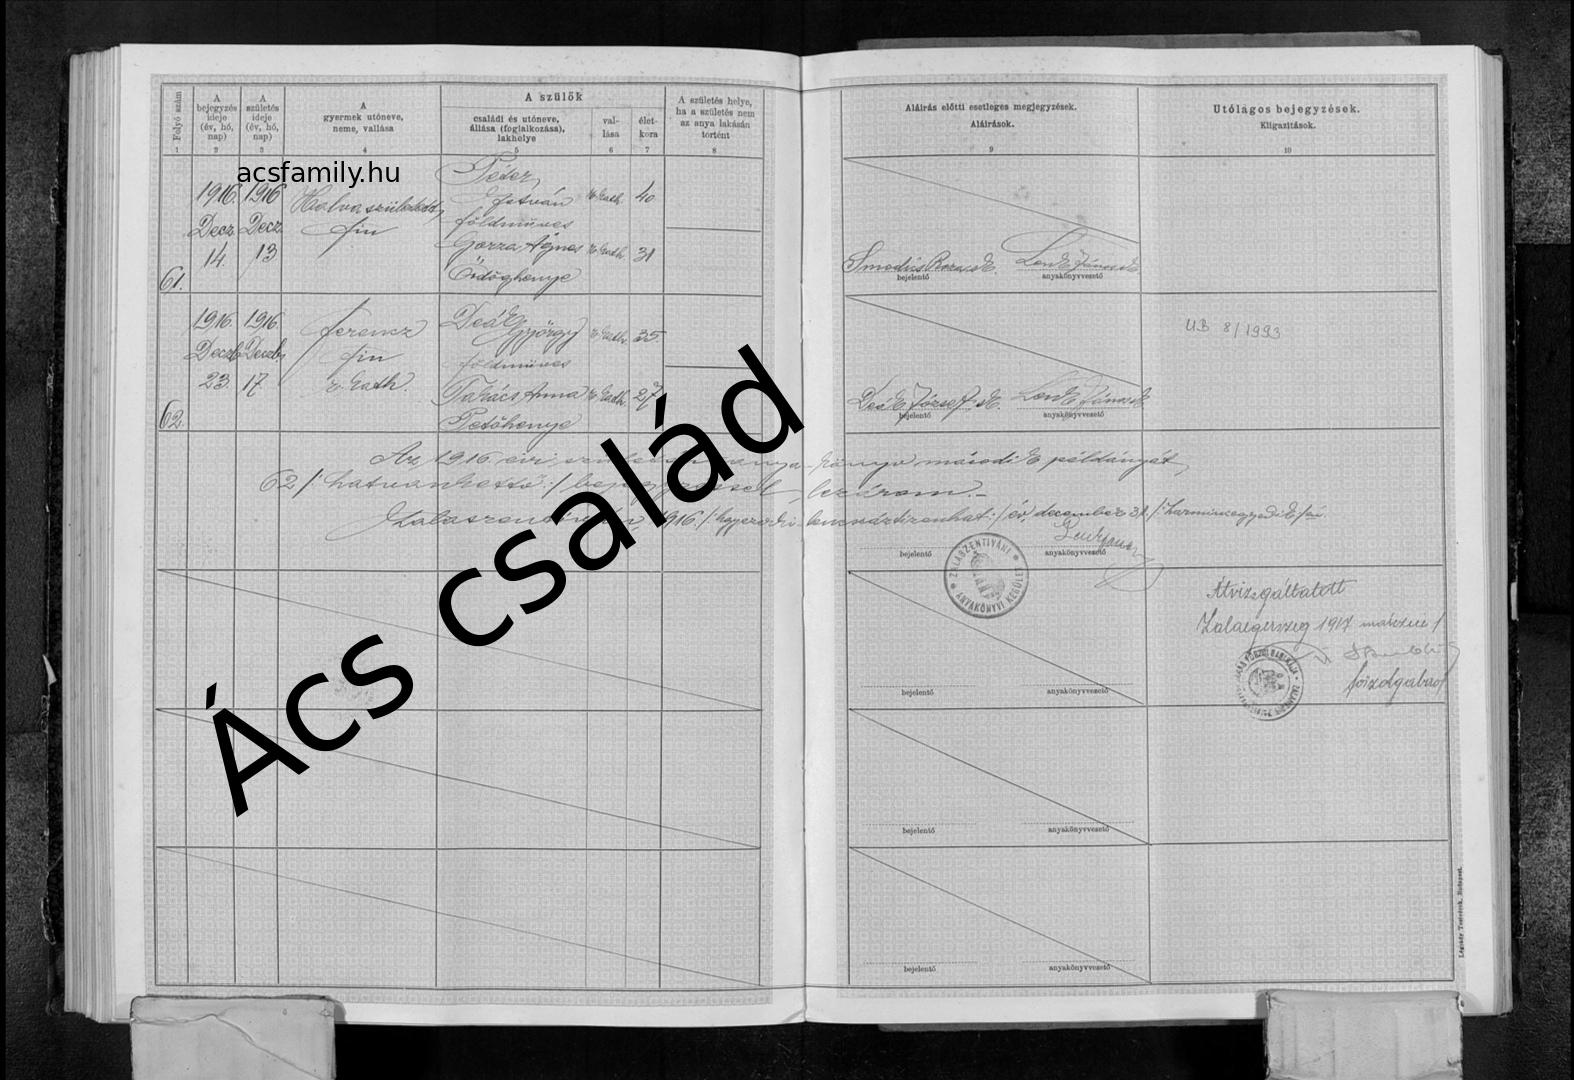 Folyó szám
A bejegyzés ideje (év, hó, nap)
A születés ideje (év, hó, nap)
A gyermek utóneve, neme, vallása
A szülők
családi és utóneve, állása (foglalkozása), lakhelye
vallása
életkora
A születés helye, ha a születés nem az anya lakásán történt
Aláírás előtti esetleges megjegyzések.
Aláírások.
Utólagos bejegyzések.
Kiigazitások.
1 2 3 4 5 6 7 8 9 10
acsfamily.hu
Péter
1916. 1916 Halva született István r. kath. 40
Decz Decz fiu földműves
14. 13 Gorza Ágnes r. kath. 31
61. Ördöghenye
Smodics Roza sk. Lenk János sk
bejelentő anyakönyvvezető
1916. 1916. Ferencz Deák György r. kath. 35.
Deczb. Deczb. fiu földműves
23. 17 r. kath Takács Anna r. kath. 27
62. Petőhenye
UB 8/1993
Deák József sk. Lenk János sk
bejelentő anyakönyvvezető
Az 1916 évi könyv második példányát
62/: hatvankettő :/ lezárom.-
1916 és december 31
bejelentő anyakönyvvezető
ZALASZENTIVÁNI ANYAKÖNYVI KERÜLET
Átvizsgáltatott
Zalaegerszeg 1917 márczius 1
főszolgabíró
bejelentő anyakönyvvezető
bejelentő anyakönyvvezető
bejelentő anyakönyvvezető
Ács család
Légrády Testvérek, Budapest.